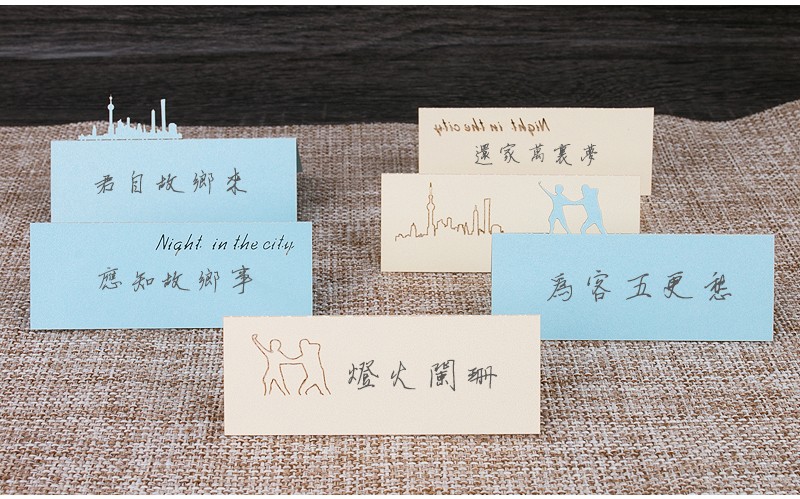 君自故鄉來
Night in the city
應知故鄉事
Night in the city
還家萬裏夢
為客五更愁
燈火闌珊